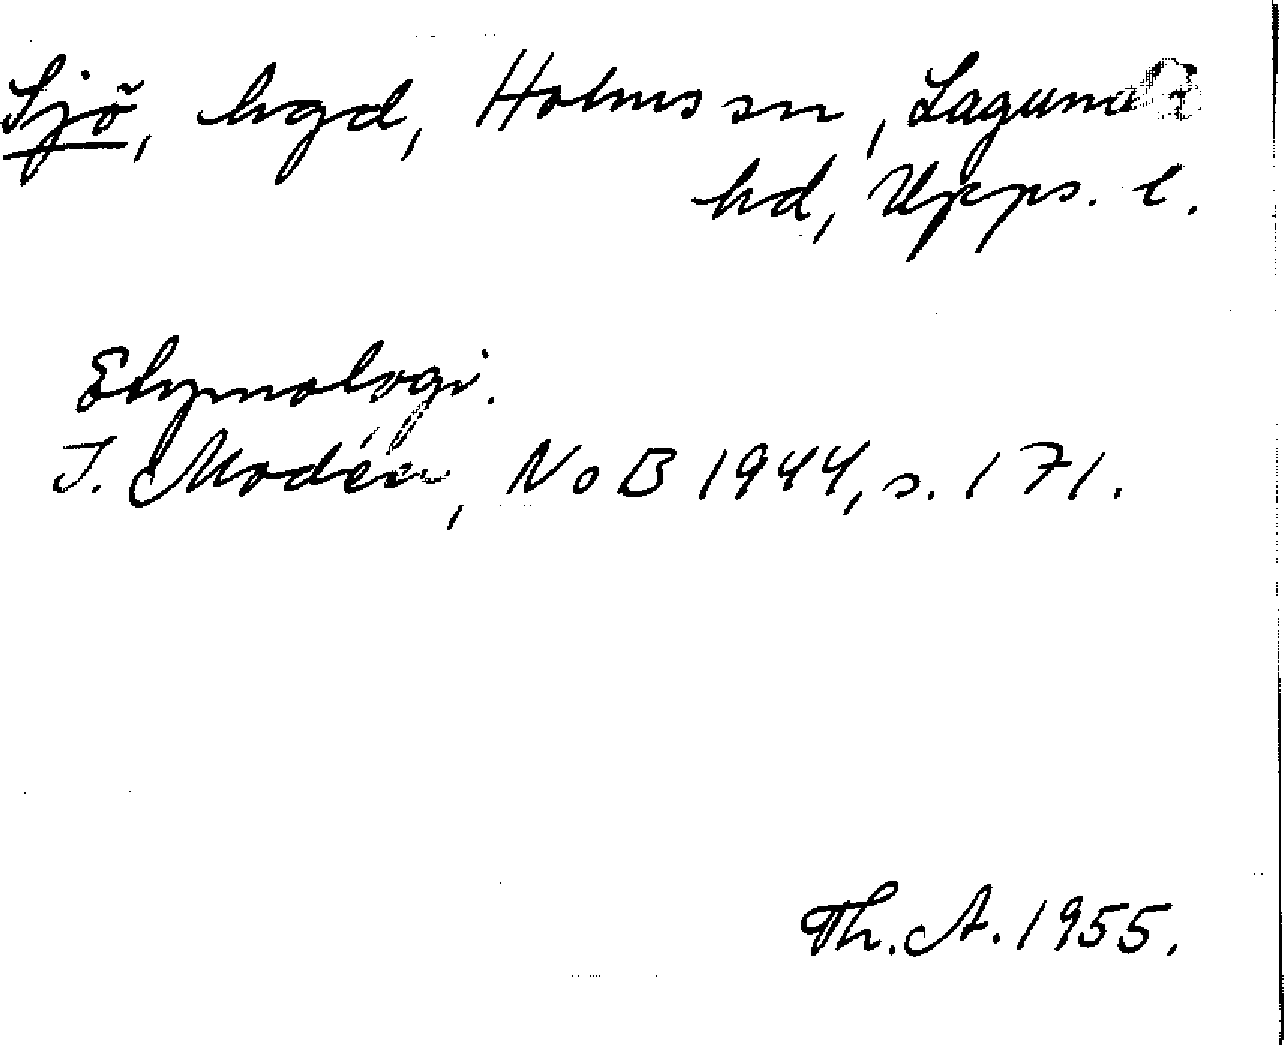 Sjö, hgd, Holms sn, Lagunda
hd, Upps. l.
Etymologi.
I. Modéer, NoB 1944, s. 171.
Th. A. 1955.